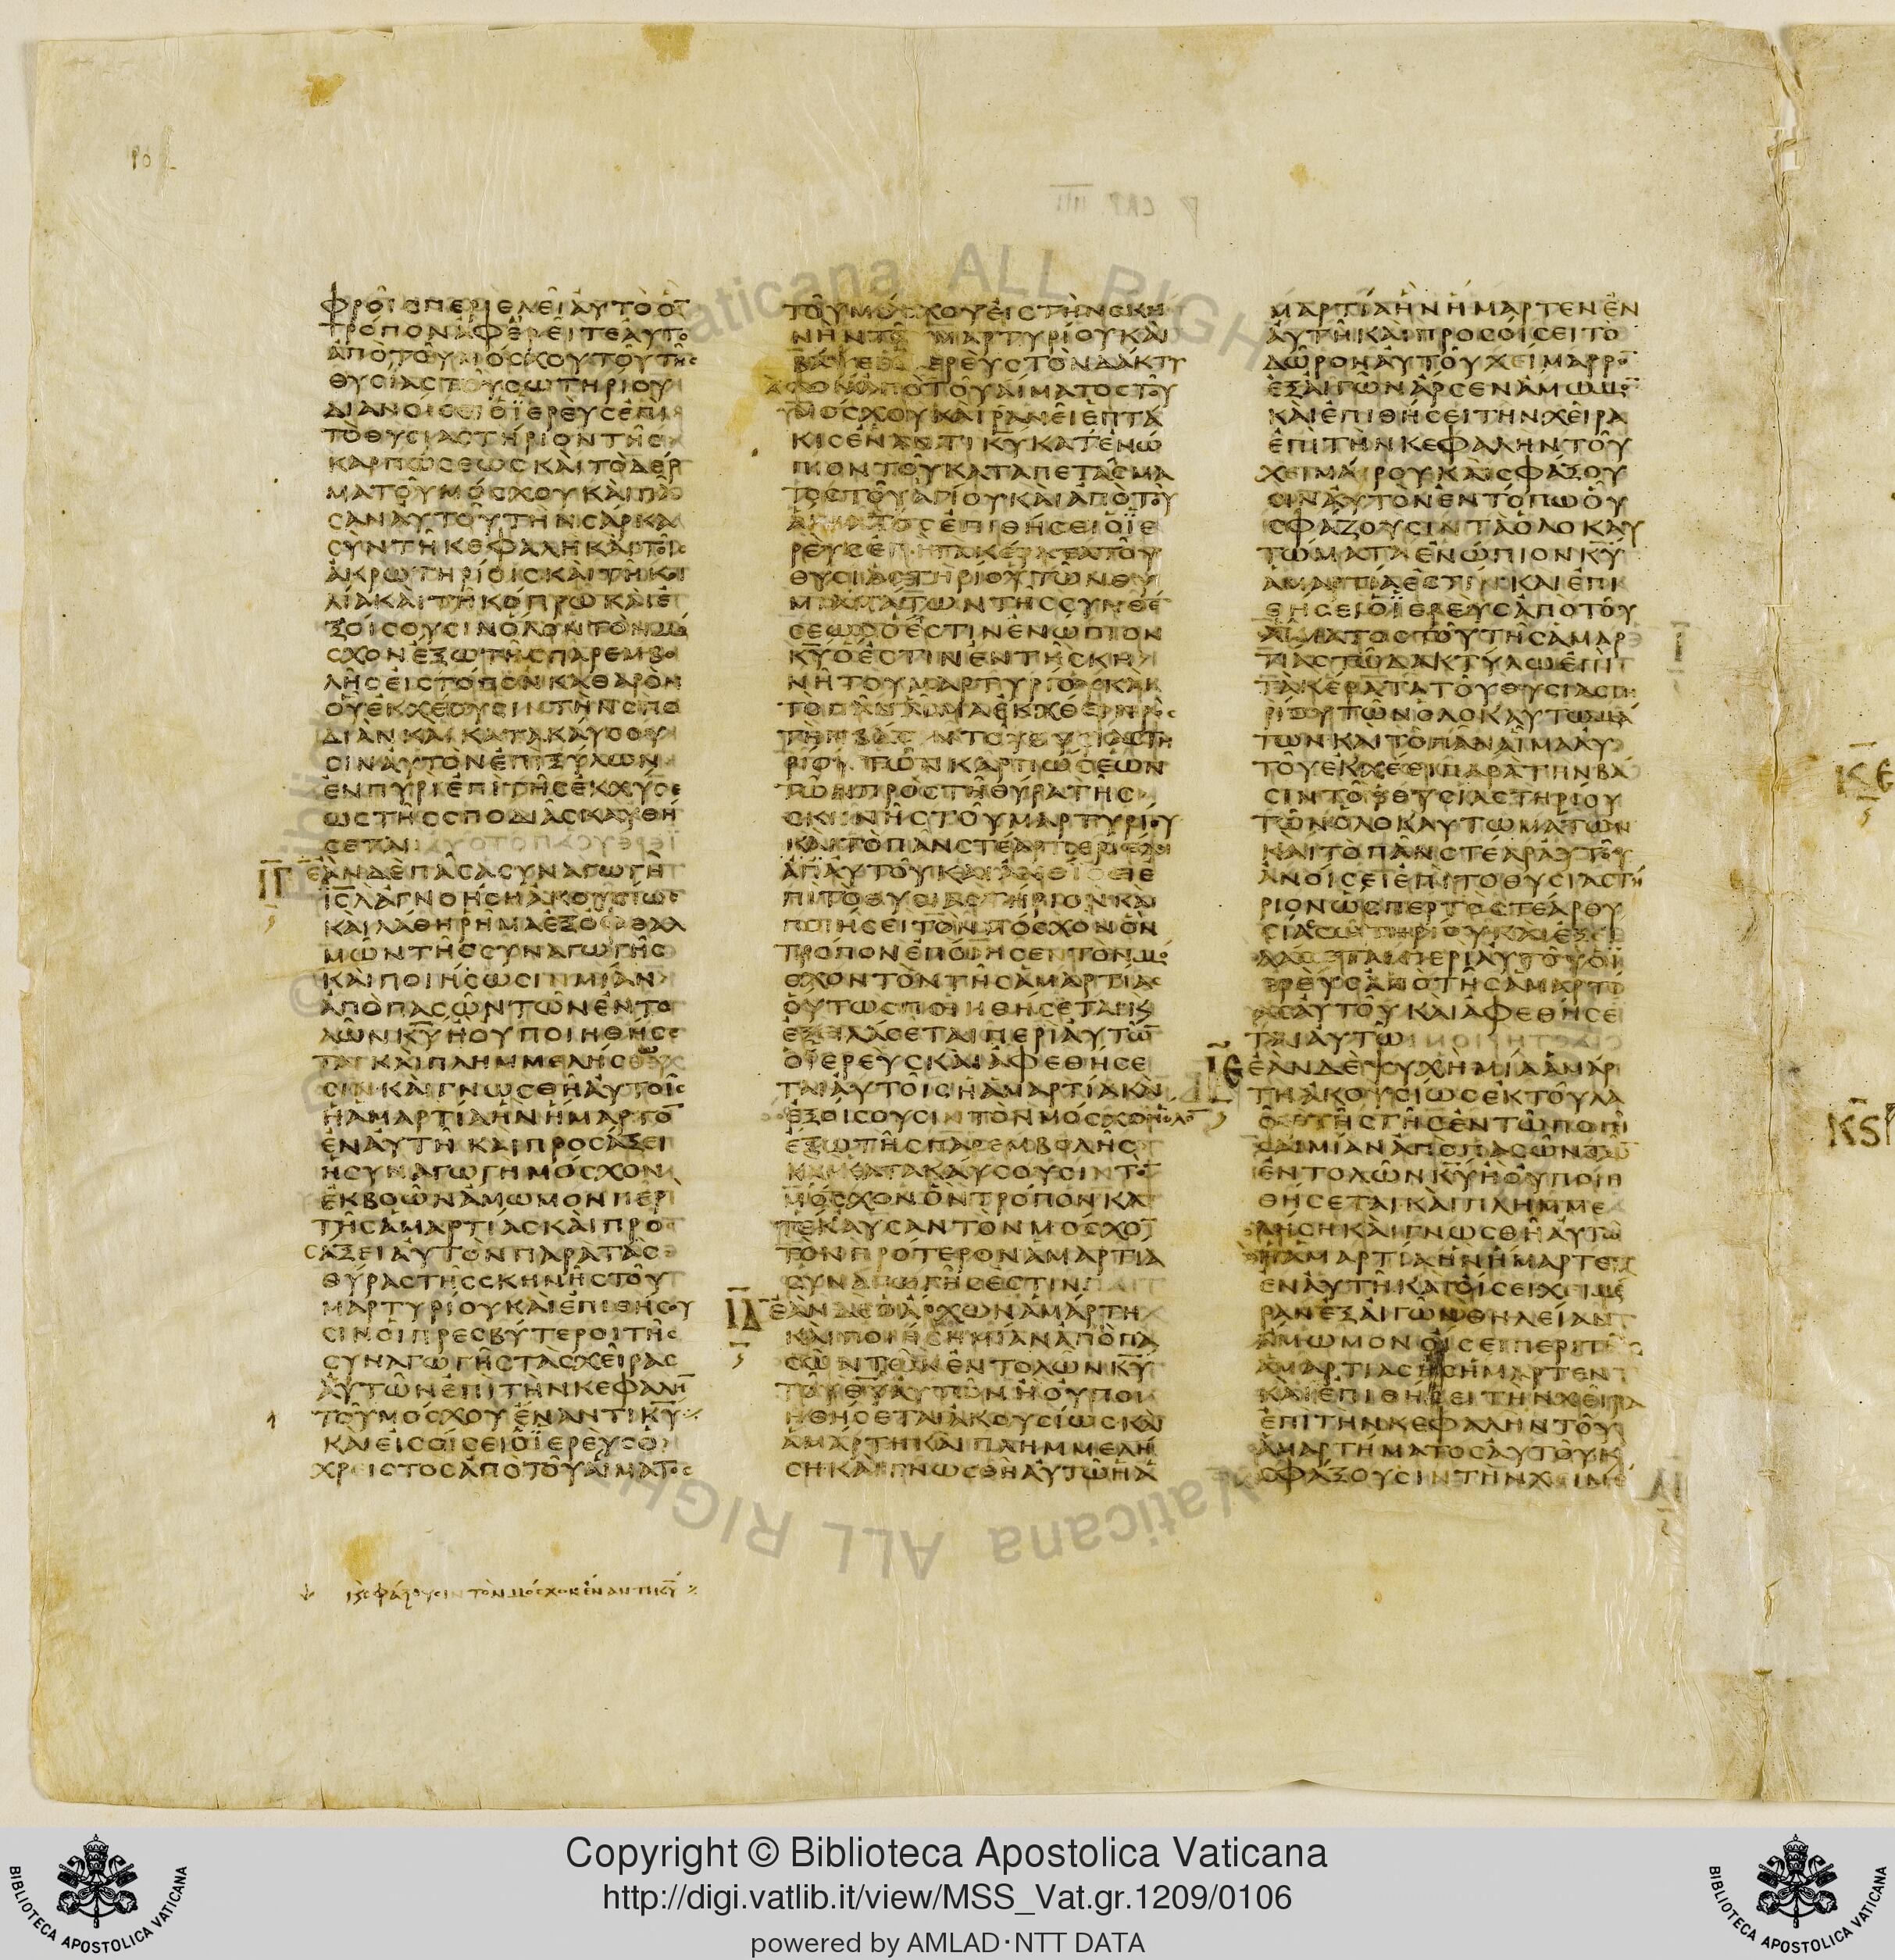 ΦΡΟΙΣΠΕΡΙΕΛΕΙΑΥΤΟΟΝ
ΤΡΟΠΟΝΑΦΕΡΕΙΤΕΑΥΤΟ
ΑΠΟΤΟΥΜΟΣΧΟΥΤΟΥΤΗΣ
ΘΥΣΙΑΣΤΟΥΣΩΤΗΡΙΟΥ
ΟΪΕΡΕΥΣΕΠΙ
ΤΟΘΥΣΙΑΣΤΗΡΙΟΝΤΗΣ
ΚΑΡΠΩΣΕΩΣΚΑΙΤΟΔΕΡ
ΜΑΤΟΥΜΟΣΧΟΥΚΑΙΠΑ
ΣΑΝΑΥΤΟΥΤΗΝΣΑΡΚΑ
ΣΥΝΤΗΚΕΦΑΛΗΚΑΙΤΟΙΣ
ΑΚΡΩΤΗΡΙΟΙΣΚΑΙΤΗΚΟΙ
ΛΙΑΚΑΙΤΗΚΟΠΡΩΚΑΙΕ
ΞΟΙΣΟΥΣΙΝΟΛΟΝΤΟΝΜΟ
ΣΧΟΝΕΞΩΤΗΣΠΑΡΕΜΒΟ
ΛΗΣΕΙΣΤΟΠΟΝΚΑΘΑΡΟΝ
ΟΥΕΚΧΕΟΥΣΙΝΤΗΝΣΠΟ
ΔΙΑΝΚΑΙΚΑΤΑΚΑΥΣΟΥ
ΣΙΝΑΥΤΟΝΕΠΙΞΥΛΩΝ
ΕΝΠΥΡΙΕΠΙΤΗΣΕΚΧΥΣΕ
ΩΣΤΗΣΣΠΟΔΙΑΣΚΑΥΘΗ
ΣΕΤΑΙ
ΙΓ ΕΑΝΔΕΠΑΣΑΣΥΝΑΓΩΓΗ
ΙΣΛΑΓΝΟΗΣΗΑΚΟΥΣΙΩΣ
ΚΑΙΛΑΘΗΡΗΜΑΕΞΟΦΘΑΛ
ΜΩΝΤΗΣΣΥΝΑΓΩΓΗΣ
ΚΑΙΠΟΙΗΣΩΣΙΝΜΙΑΝ
ΑΠΟΠΑΣΩΝΤΩΝΕΝΤΟ
ΛΩΝΚΥΗΟΥΠΟΙΗΘΗΣΕ
ΤΑΙΚΑΙΠΛΗΜΜΕΛΗΣΩ
ΣΙΝΚΑΙΓΝΩΣΘΗΑΥΤΟΙΣ
ΗΑΜΑΡΤΙΑΗΝΗΜΑΡΤΟΝ
ΕΝΑΥΤΗΚΑΙΠΡΟΣΑΞΕΙ
ΗΣΥΝΑΓΩΓΗΜΟΣΧΟΝ
ΕΚΒΟΩΝΑΜΩΜΟΝΠΕΡΙ
ΤΗΣΑΜΑΡΤΙΑΣΚΑΙΠΡΟ
ΣΑΞΕΙΑΥΤΟΝΠΑΡΑΤΑΣ
ΘΥΡΑΣΤΗΣΣΚΗΝΗΣΤΟΥ
ΜΑΡΤΥΡΙΟΥΚΑΙΕΠΙΘΗΣΟΥ
ΣΙΝΟΙΠΡΕΣΒΥΤΕΡΟΙΤΗΣ
ΣΥΝΑΓΩΓΗΣΤΑΣΧΕΙΡΑΣ
ΑΥΤΩΝΕΠΙΤΗΝΚΕΦΑΛΗΝ
ΤΟΥΜΟΣΧΟΥΕΝΑΝΤΙΚΥ
ΚΑΙΕΙΣΟΙΣΕΙΟΪΕΡΕΥΣΟ
ΧΡΕΙΣΤΟΣΑΠΟΤΟΥΑΙΜΑΤΟΣ
ΣΦΑΞΟΥΣΙΝΤΟΝΜΟΣΧΟΝΕΝΑΝΤΙΚΥ
ΤΟΥΜΟΣΧΟΥΕΙΣΤΗΝΣΚΗ
ΝΗΝΤΟΥΜΑΡΤΥΡΙΟΥΚΑΙ
ΒΑΨΕΙΟΪΕΡΕΥΣΤΟΝΔΑΚΤΥ
ΛΟΝΑΠΟΤΟΥΑΙΜΑΤΟΣΤΟΥ
ΜΟΣΧΟΥΚΑΙΡΑΝΕΙΕΠΤΑ
ΚΙΣΕΝΑΝΤΙΚΥΚΑΤΕΝΩ
ΠΙΟΝΤΟΥΚΑΤΑΠΕΤΑΣΜΑ
ΤΟΣΤΟΥΑΓΙΟΥΚΑΙΑΠΟΤΟΥ
ΑΙΜΑΤΟΣΕΠΙΘΗΣΕΙΟΪΕ
ΡΕΥΣΕΠΙΤΑΚΕΡΑΤΑΤΟΥ
ΘΥΣΙΑΣΤΗΡΙΟΥΤΩΝΘΥ
ΜΙΑΜΑΤΩΝΤΗΣΣΥΝΘΕ
ΣΕΩΣΟΕΣΤΙΝΕΝΩΠΙΟΝ
ΚΥΟΕΣΤΙΝΕΝΤΗΣΚΗ
ΝΗΤΟΥΜΑΡΤΥΡΙΟΥΚΑΙ
ΤΟΠΑΝΑΙΜΑΕΚΧΕΕΙΠΡΟΣ
ΤΩΝΚΑΡΠΩΣΕΩΝ
ΤΩΝΠΡΟΣΤΗΘΥΡΑΤΗΣ
ΣΚΗΝΗΣΤΟΥΜΑΡΤΥΡΙΟΥ
ΚΑΙΤΟΠΑΝΣΤΕΑΡΠΕΡΙΕΛΕΙ
ΑΠΑΥΤΟΥΚΑΙΑΝΟΙΣΕΙΕ
ΠΙΤΟΘΥΣΙΑΣΤΗΡΙΟΝΚΑΙ
ΠΟΙΗΣΕΙΤΟΝΜΟΣΧΟΝΟΝ
ΤΡΟΠΟΝΕΠΟΙΗΣΕΝΤΟΝΜΟ
ΣΧΟΝΤΟΝΤΗΣΑΜΑΡΤΙΑΣ
ΟΥΤΩΣΠΟΙΗΘΗΣΕΤΑΙΚ
ΕΞΕΙΛΑΣΕΤΑΙΠΕΡΙΑΥΤΩΝ
ΟΪΕΡΕΥΣΚΑΙΑΦΕΘΗΣΕ
ΤΑΙΑΥΤΟΙΣΗΑΜΑΡΤΙΑΚΑΙ
ΕΞΟΙΣΟΥΣΙΝΤΟΝΜΟΣΧΟΝΟΛΟΝ
ΕΞΩΤΗΣΠΑΡΕΜΒΟΛΗΣ
ΚΑΙΚΑΤΑΚΑΥΣΟΥΣΙΝΤΟΝ
ΜΟΣΧΟΝΟΝΤΡΟΠΟΝΚΑ
ΤΕΚΑΥΣΑΝΤΟΝΜΟΣΧΟΝ
ΤΟΝΠΡΟΤΕΡΟΝΑΜΑΡΤΙΑ
ΣΥΝΑΓΩΓΗΣΕΣΤΙΝ
ΙΔ ΕΑΝΔΕΟΑΡΧΩΝΑΜΑΡΤΗ
ΚΑΙΠΟΙΗΣΗΜΙΑΝΑΠΟΠΑ
ΣΩΝΤΩΝΕΝΤΟΛΩΝΚΥ
ΤΟΥΘΥΑΥΤΩΝΗΟΥΠΟΙ
ΗΘΗΣΕΤΑΙΑΚΟΥΣΙΩΣΚΑΙ
ΑΜΑΡΤΗΚΑΙΠΛΗΜΜΕΛΗ
ΣΗΚΑΙΓΝΩΣΘΗΑΥΤΩΗΑ
ΜΑΡΤΙΑΗΝΗΜΑΡΤΕΝΕΝ
ΑΥΤΗΚΑΙΠΡΟΣΟΙΣΕΙΤΟ
ΔΩΡΟΝΑΥΤΟΥΧΕΙΜΑΡΡΟΝ
ΕΞΑΙΓΩΝΑΡΣΕΝΑΜΩΜΟΝ
ΚΑΙΕΠΙΘΗΣΕΙΤΗΝΧΕΙΡΑ
ΕΠΙΤΗΝΚΕΦΑΛΗΝΤΟΥ
ΧΕΙΜΑΡΟΥΚΑΙΣΦΑΞΟΥ
ΣΙΝΑΥΤΟΝΕΝΤΟΠΩΟΥ
ΣΦΑΖΟΥΣΙΝΤΑΟΛΟΚΑΥ
ΤΩΜΑΤΑΕΝΩΠΙΟΝΚΥ
ΑΜΑΡΤΙΑΕΣΤΙΝΚΑΙΕΠΙ
ΘΗΣΕΙΟΪΕΡΕΥΣΑΠΟΤΟΥ
ΑΙΜΑΤΟΣΤΟΥΤΗΣΑΜΑΡ
ΤΙΑΣΤΩΔΑΚΤΥΛΩΕΠΙ
ΤΑΚΕΡΑΤΑΤΟΥΘΥΣΙΑΣΤΗ
ΡΙΟΥΤΩΝΟΛΟΚΑΥΤΩΜΑ
ΤΩΝΚΑΙΤΟΠΑΝΑΙΜΑΑΥ
ΤΟΥΕΚΧΕΕΙΠΑΡΑΤΗΝΒΑ
ΣΙΝΤΟΥΘΥΣΙΑΣΤΗΡΙΟΥ
ΤΩΝΟΛΟΚΑΥΤΩΜΑΤΩΝ
ΚΑΙΤΟΠΑΝΣΤΕΑΡΑΥΤΟΥ
ΑΝΟΙΣΕΙΕΠΙΤΟΘΥΣΙΑΣΤΗ
ΡΙΟΝΩΣΠΕΡΤΟΣΤΕΑΡΘΥ
ΣΙΑΣΣΩΤΗΡΙΟΥΚΑΙΕΞΕΙ
ΛΑΣΕΤΑΙΠΕΡΙΑΥΤΟΥΟΪ
ΕΡΕΥΣΑΠΟΤΗΣΑΜΑΡΤΙ
ΑΣΑΥΤΟΥΚΑΙΑΦΕΘΗΣΕ
ΤΑΙΑΥΤΩ
ΙΕ ΕΑΝΔΕΨΥΧΗΜΙΑΑΜΑΡ
ΤΗΑΚΟΥΣΙΩΣΕΚΤΟΥΛΑ
ΟΥΤΗΣΓΗΣΕΝΤΩΠΟΙΗ
ΣΑΙΜΙΑΝΑΠΟΠΑΣΩΝΤΩΝ
ΕΝΤΟΛΩΝΚΥΗΟΥΠΟΙΗ
ΘΗΣΕΤΑΙΚΑΙΠΛΗΜΜΕ
ΛΗΣΗΚΑΙΓΝΩΣΘΗΑΥΤΩ
ΗΑΜΑΡΤΙΑΗΝΗΜΑΡΤΕΝ
ΕΝΑΥΤΗΚΑΙΟΙΣΕΙΧΕΙΜΑΙ
ΡΑΝΕΞΑΙΓΩΝΘΗΛΕΙΑΝ
ΑΜΩΜΟΝΟΙΣΕΙΠΕΡΙΤΗΣ
ΑΜΑΡΤΙΑΣΗΣΗΜΑΡΤΕΝ
ΚΑΙΕΠΙΘΗΣΕΙΤΗΝΧΕΙΡΑ
ΕΠΙΤΗΝΚΕΦΑΛΗΝΤΟΥ
ΑΜΑΡΤΗΜΑΤΟΣΑΥΤΟΥΚ
ΣΦΑΞΟΥΣΙΝΤΗΝΧΕΙΜΕ
Copyright © Biblioteca Apostolica Vaticana
http://digi.vatlib.it/view/MSS_Vat.gr.1209/0106
powered by AMLAD·NTT DATA
BIBLIOTECA APOSTOLICA VATICANA
BIBLIOTECA APOSTOLICA VATICANA